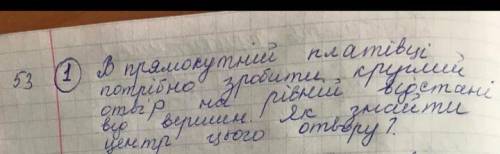 53 1 В прямокутній платівці
потрібно зробити круглий
отвір на рівній відстані
від вершин. Як знайти
центр цього отвору?